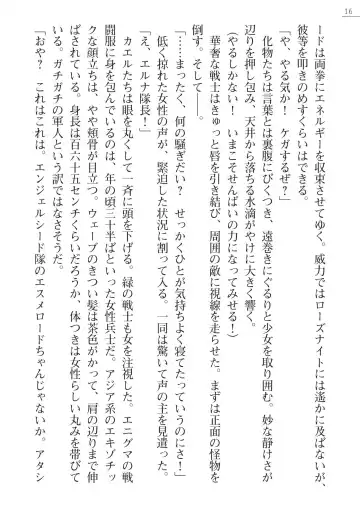 16
ードは両拳にエネルギーを収束させてゆく。威力ではローズナイトには遙かに及ばないが、
彼等を叩きのめすくらいはできる。
「や、やる気か! ケガするぜ?」
化物たちは言葉とは裏腹にびくつき、遠巻きにぐるりと少女を取り囲む。妙な静けさが
辺りを押し包み、天井から落ちる水滴がやけに大きく響く。
(やるしかない! いまこそせんぱいの力になってみせる!)
華奢な戦士はきゅっと唇を引き結び、周囲の敵に視線を走らせた。まずは正面の怪物を
倒す。そして――。
「……まったく、何の騒ぎだい? せっかくひとが気持ちよく寝てたっていうのにさ!」
低く掠れた女性の声が、緊迫した状況に割って入る。一同は驚いて声の主を見遣った。
「え、エルナ隊長!」
カエルたちは眼を丸くして一斉に頭を下げる。緑の戦士も女を注視した。エニグマの戦
闘服に身を包んでいるのは、年の頃三十半ばといった女性兵士だ。アジア系のエキゾチッ
クな顔立ちは、やや頬骨が目立つ。ウェーブのきつい髪は茶色がかって、肩の辺りまで伸
ばされている。身長は百六十五センチくらいだろうか、体つきは女性らしい丸みを帯びて
いる。ガチガチの軍人という訳ではなさそうだ。
「おや? これはこれは。エンジェルシード隊のエスメロードちゃんじゃないか。アタシ